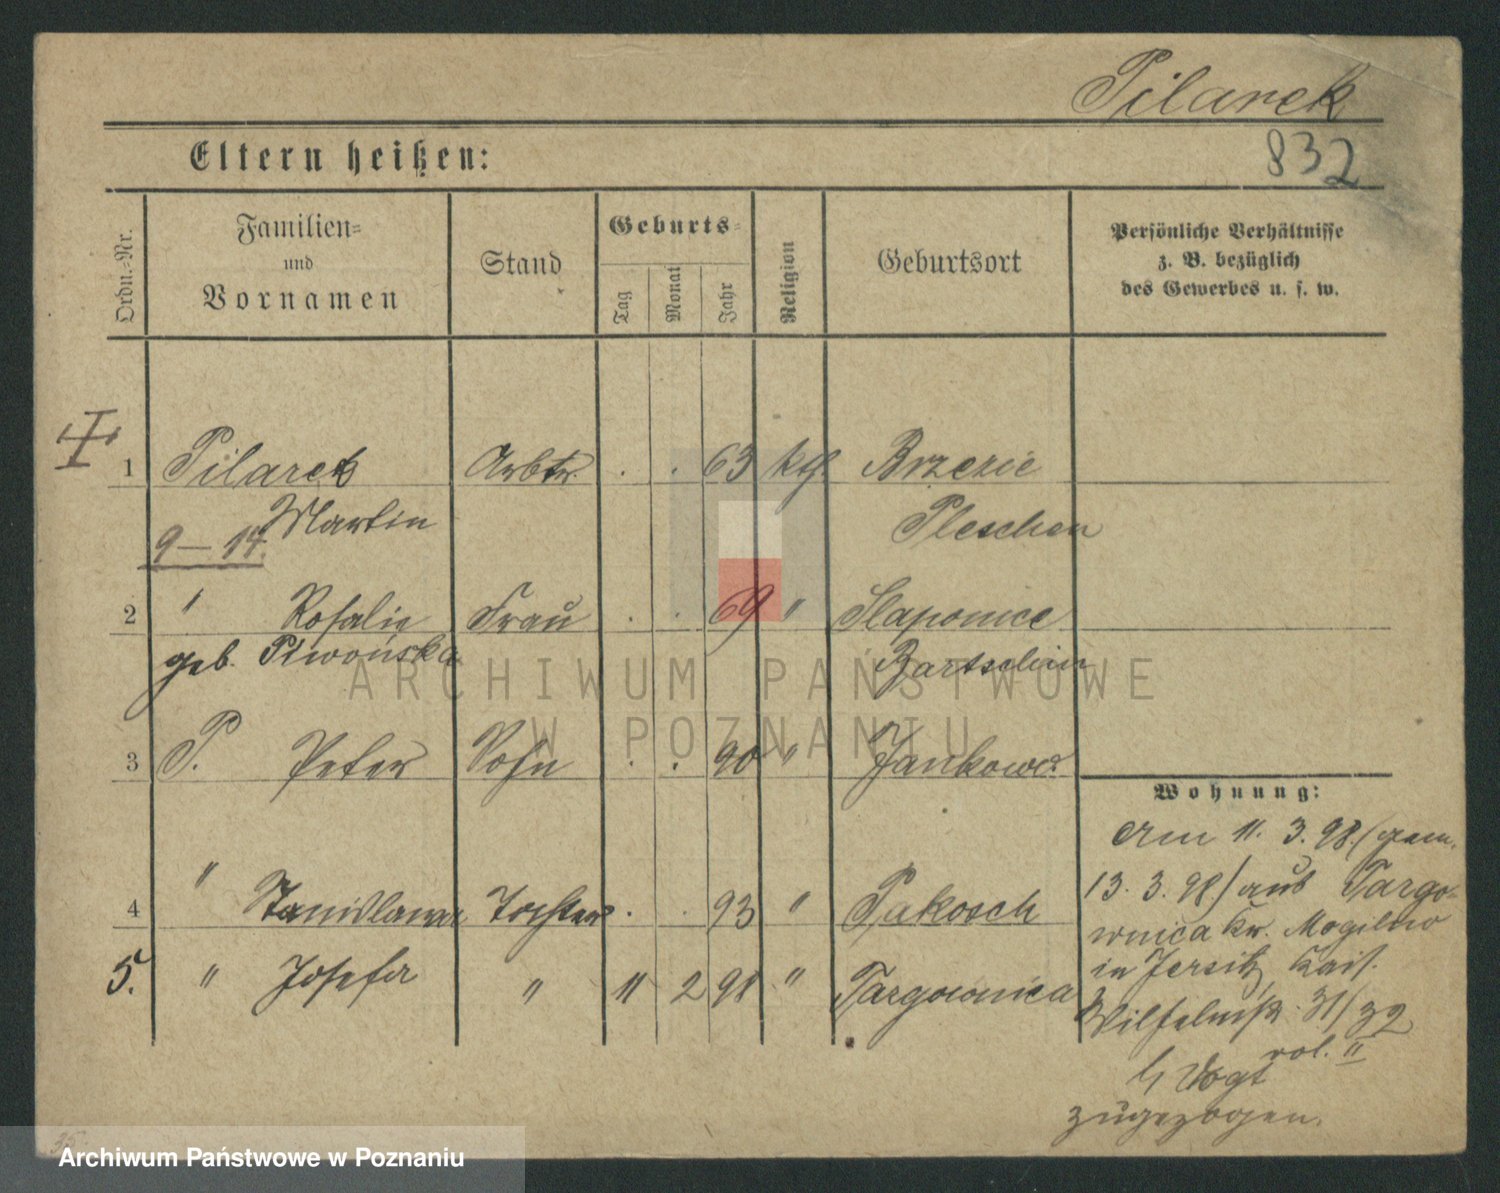 Pilarek
832
Eltern heißen:
Ordn.-Nr.
Familien- und Vornamen
Stand
Geburts-
Tag
Monat
Jahr
Religion
Geburtsort
Persönliche Verhältnisse
z. B. bezüglich
des Gewerbes u. s. w.
1 Pilarek Arbtr. . . 63 kth. Brzezie
Martin Pleschen
9 – 14.
2 " Rosalie Frau . . 69 " Slaponice
geb. Piwońska Bartschin
3 P. Peter Sohn . . 90 " Jankowo
Wohnung:
Am 11. 3. 98. (gem.
13. 3. 98) aus Targo-
4 " Stanislawa Tochter . . 93 " Pakosch
wnica Kr. Mogilno
5. " Josefa " 11 2 98 " Targownica
in Jersitz, Kais.
Wilhelmstr. 31/32
vol. II
b/ Vogt
zugezogen.
35.
ARCHIWUM PAŃSTWOWE
W POZNANIU
Archiwum Państwowe w Poznaniu